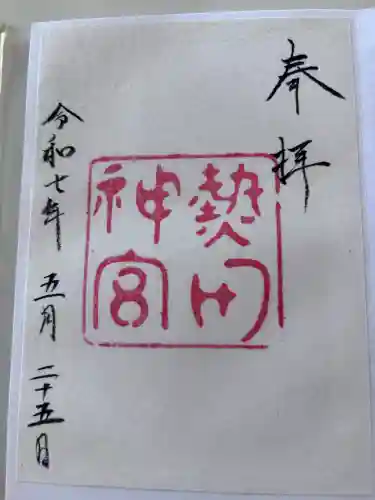 奉拝
熱田
神宮
令和七年 五月 二十五日